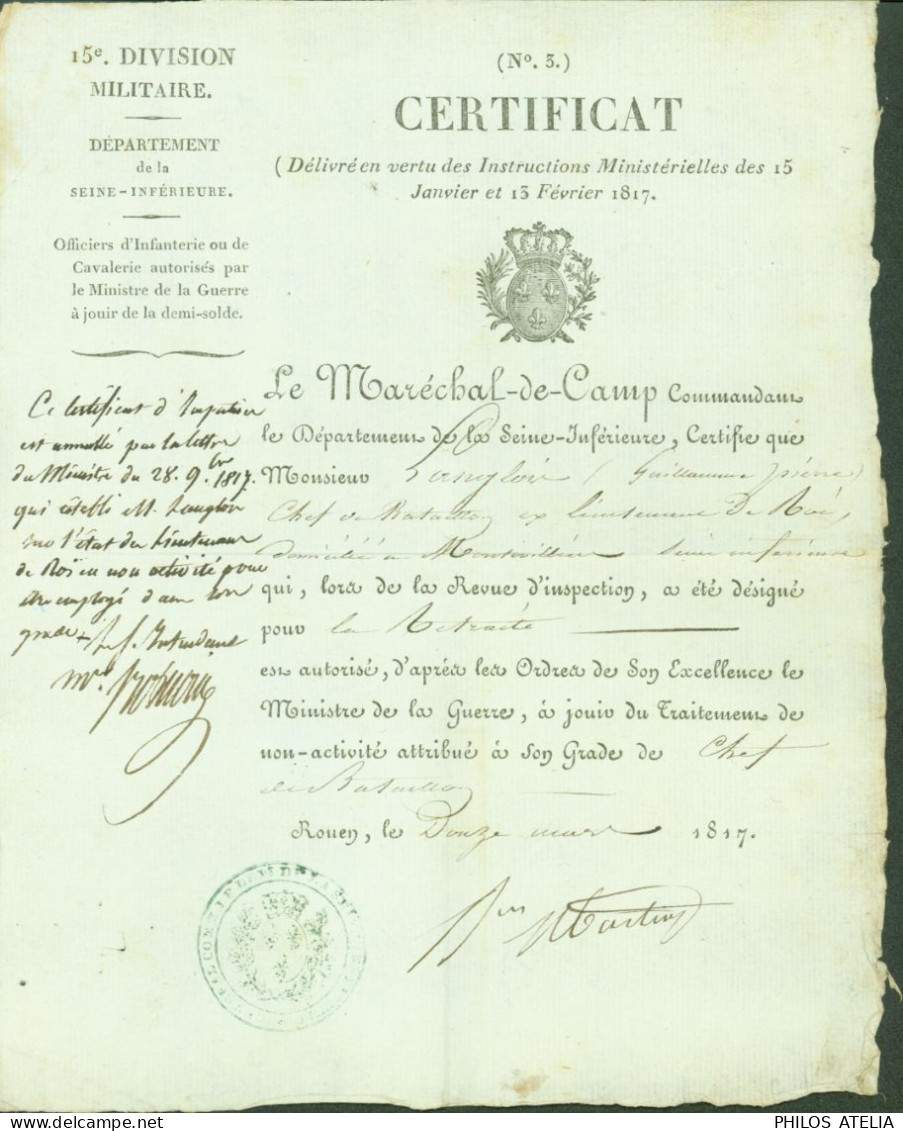 15e. DIVISION
MILITAIRE.
DÉPARTEMENT
de la
SEINE-INFÉRIEURE.
Officiers d'Infanterie ou de
Cavalerie autorisés par
le Ministre de la Guerre
à jouir de la demi-solde.
(No. 3.)
CERTIFICAT
(Délivré en vertu des Instructions Ministérielles des 15
Janvier et 13 Février 1817.
Le Maréchal-de-Camp Commandant
le Département de la Seine-Inférieure, Certifie que
Monsieur Langlois (Guillaume Pierre)
Chef de Bataillon ex lieutenant de Roi,
domicilié à Montivilliers Seine inférieure
qui, lors de la Revue d'inspection, a été désigné
pour la Retraite
est autorisé, d'après les Ordres de Son Excellence le
Ministre de la Guerre, à jouir du Traitement de
non-activité attribué à son Grade de Chef
de Bataillon
Rouen, le Douze mars 1817.
Ce Certificat d'
est annullé par la lettre
du Ministre du 28. 9.bre 1817.
qui établi M. Langlois
sur l'état des Lieutenans
de Roi en non activité pour
être employé dans son
grade
Intendant
Martin
PHILOS ATELIA